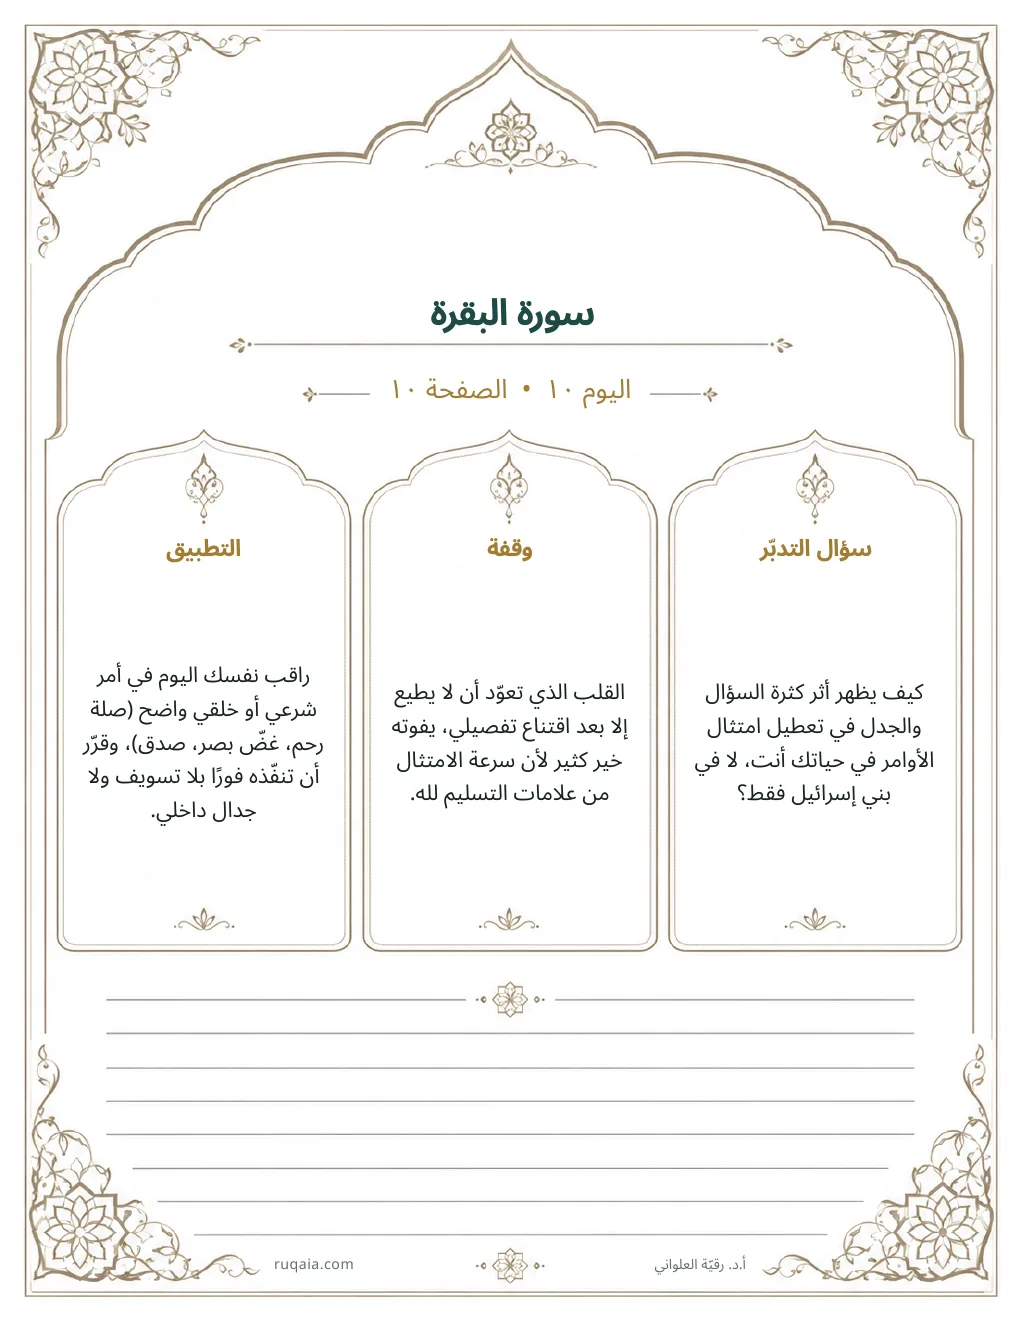 سورة البقرة
اليوم ١٠ • الصفحة ١٠
سؤال التدبّر
كيف يظهر أثر كثرة السؤال
والجدل في تعطيل امتثال
الأوامر في حياتك أنت، لا في
بني إسرائيل فقط؟
وقفة
القلب الذي تعوّد أن لا يطيع
إلا بعد اقتناع تفصيلي، يفوته
خير كثير لأن سرعة الامتثال
من علامات التسليم لله.
التطبيق
راقب نفسك اليوم في أمر
شرعي أو خلقي واضح (صلة
رحم، غضّ بصر، صدق)، وقرّر
أن تنفّذه فورًا بلا تسويف ولا
جدال داخلي.
أ.د. رقيّة العلواني
ruqaia.com